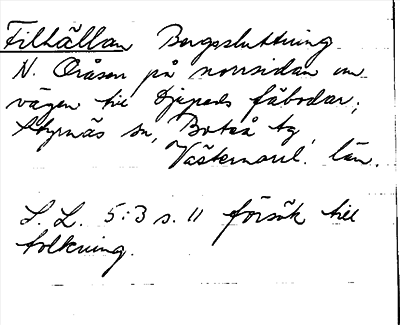 Filhällan Bergssluttning
N. Oråsen på norrsidan om
vägen till Djupeds fäbodar,
Styrnäs sn, Boteå tg,
Västernorrl. län.
S. L. 5:3 s. 11 försök till
tolkning.